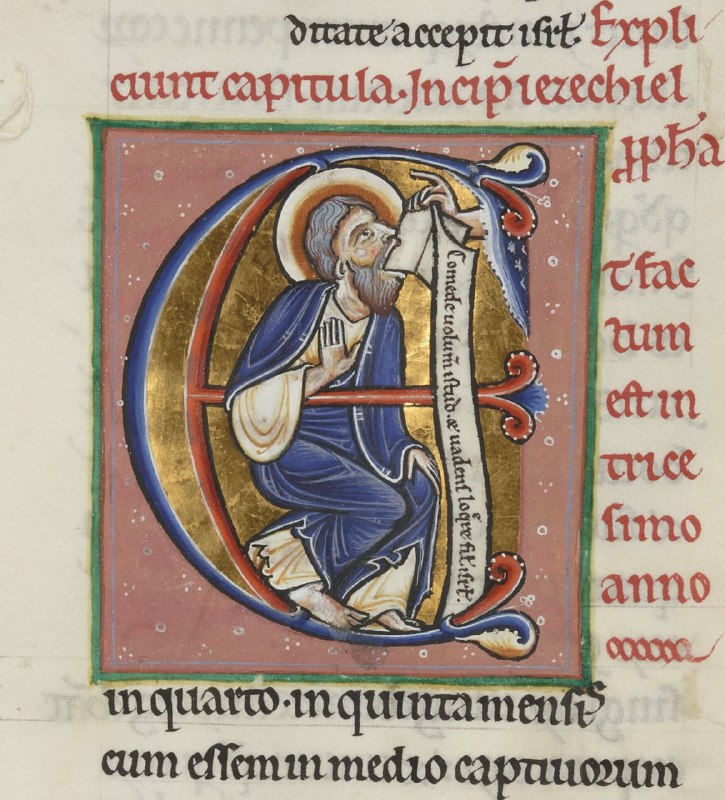 ditate accepit isrł. Expli
ciunt capitula. Incip̃ iezechiel
ꝓph̃a
E
t fac
tum
est in
trice
simo
anno
Comede uolum̃ istud. & uadens loq̃re fił. isrł.
in quarto. in quinta mensis
cum essem in medio captiuorum